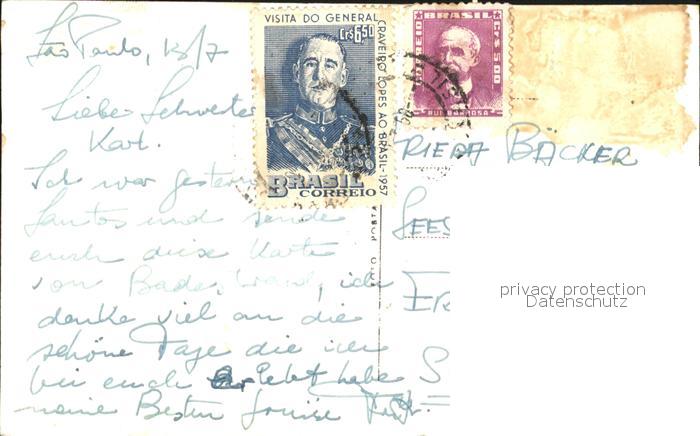 São Paulo, 13/7
Liebe Schwester
Karl.
Ich war gestern
Santos und sende
euch diese Karte
von Badestrand, ich
denke viel an die
schöne Tage die ich
bei euch erlebt habe
meine Besten Louise
VISITA DO GENERAL
CRAVEIRO LOPES AO BRASIL-1957
Cr$ 6,50
BRASIL
CORREIO
BRASIL
CORREIO
CR$ 5,00
RUI BARBOSA
RIEDA BÄCKER
SEES
ER
S
privacy protection
Datenschutz